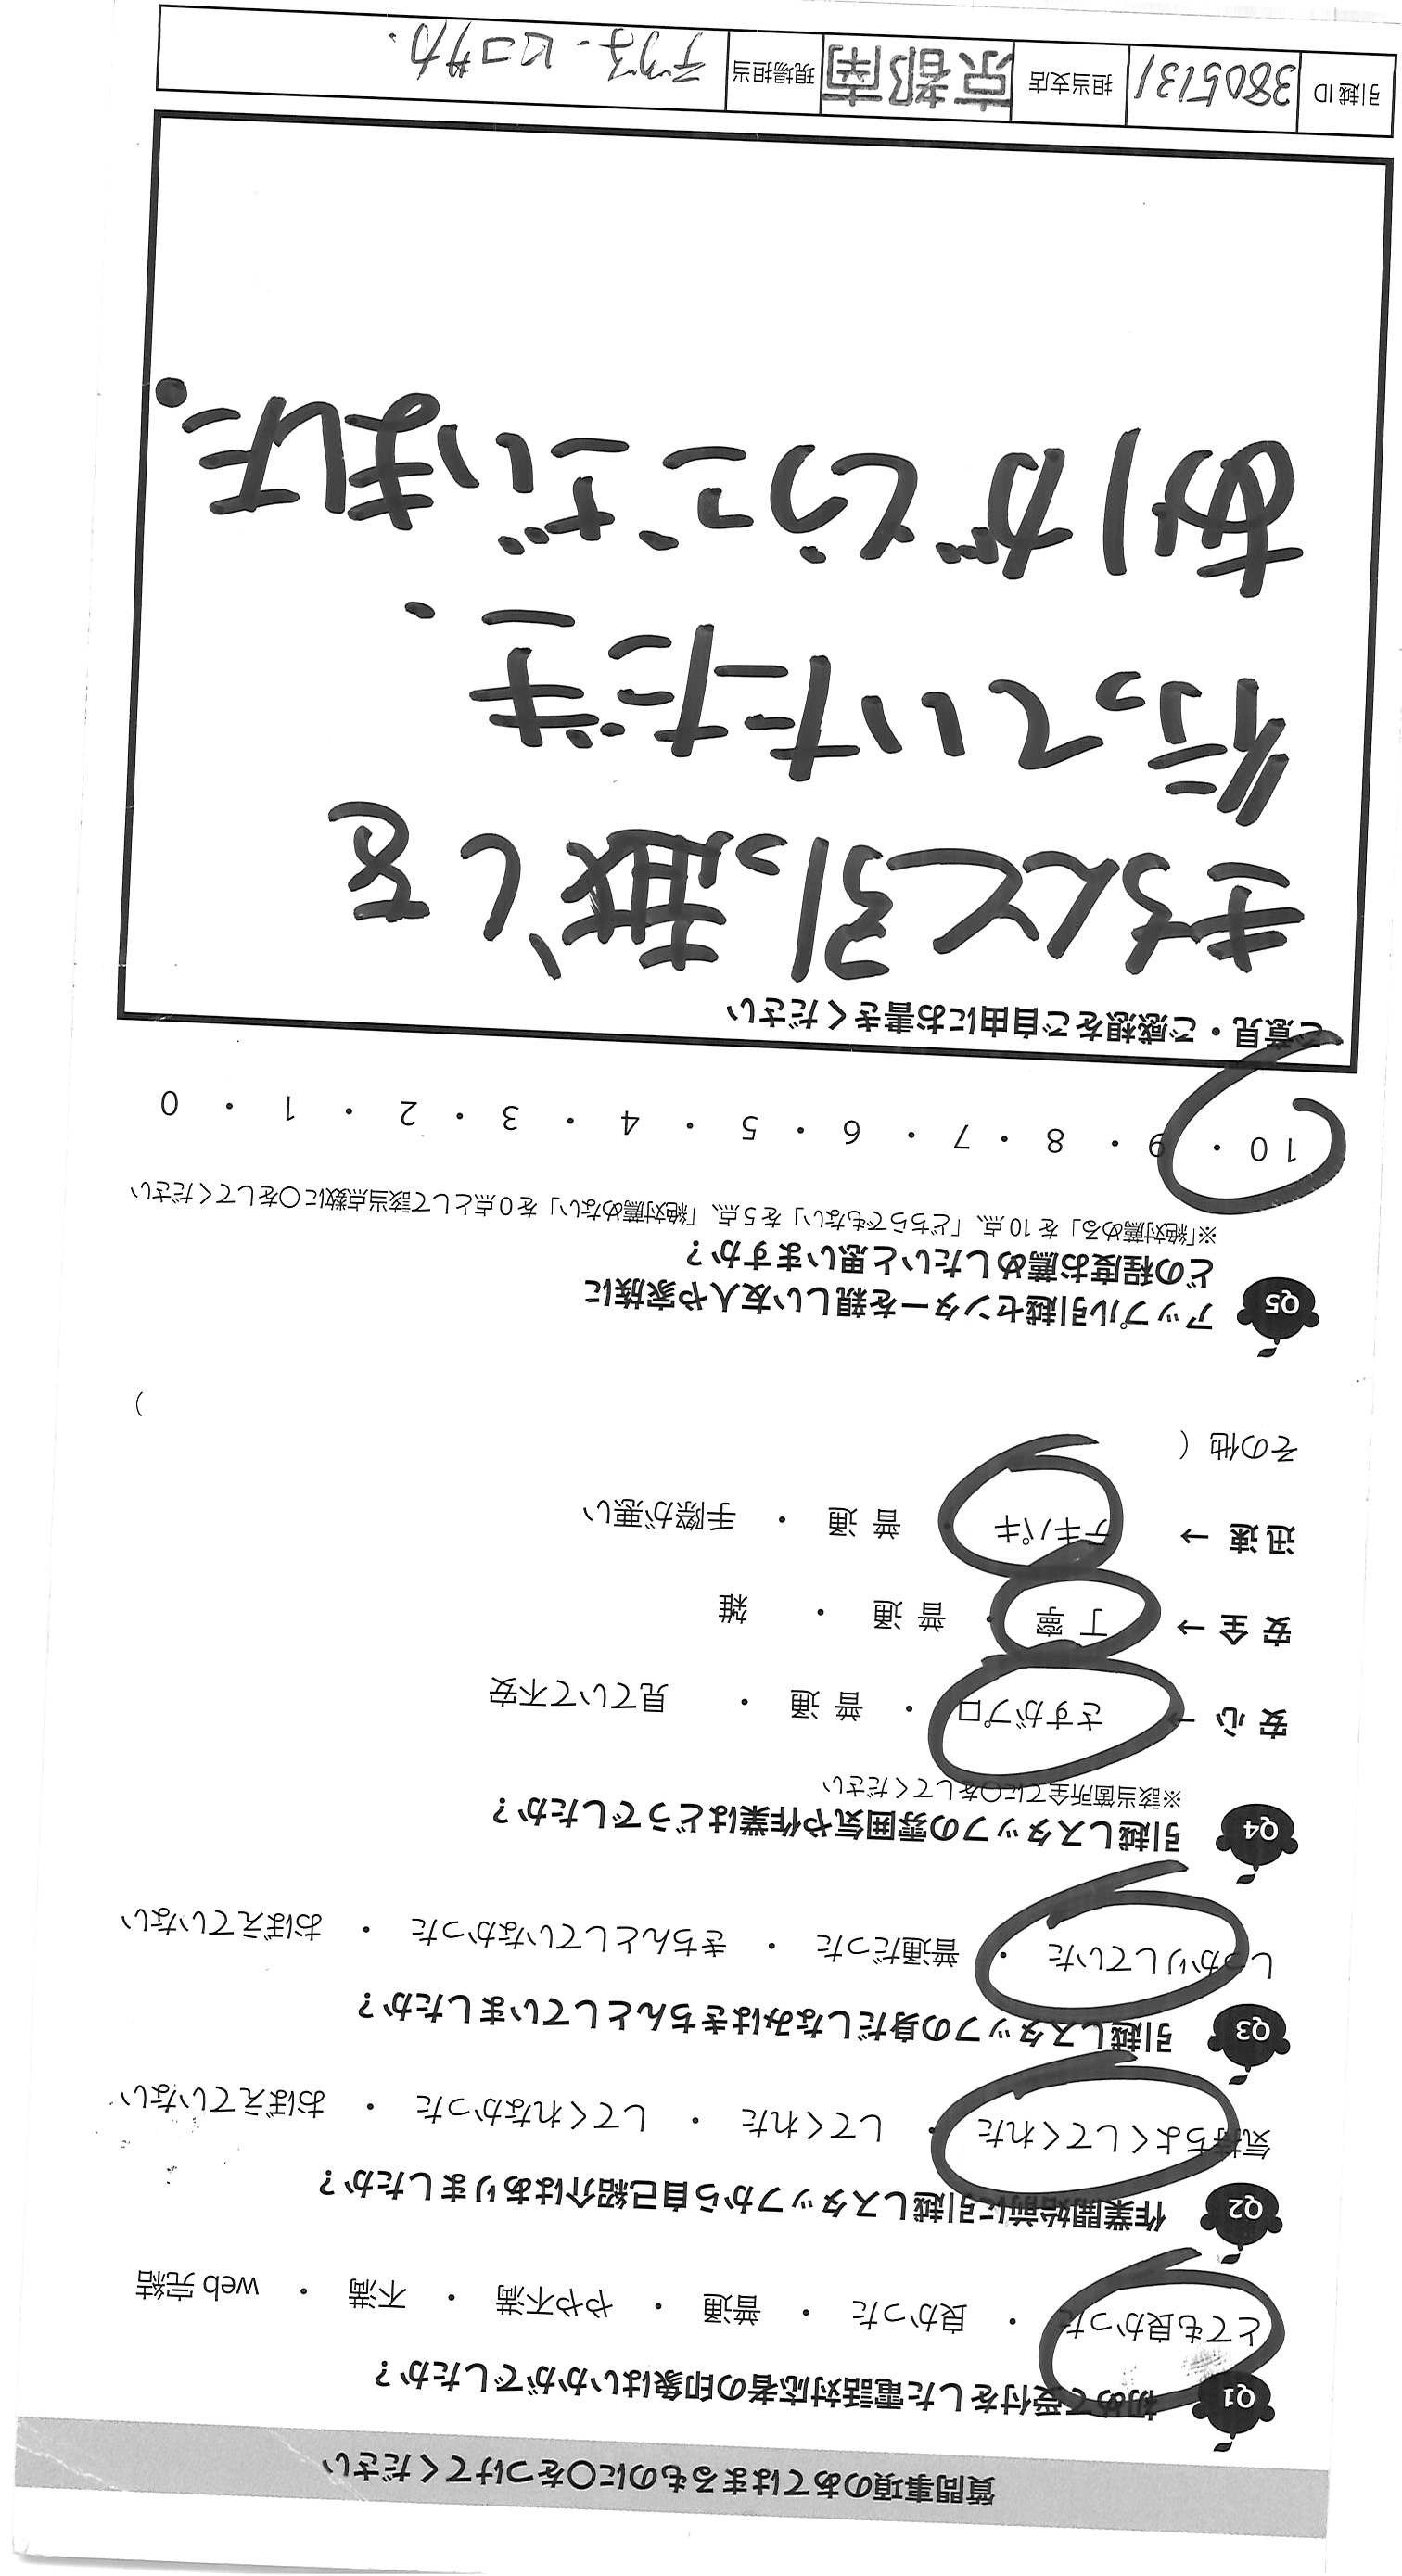 質問事項のあてはまるものに〇をつけてください
Q1 初めて受付をした電話対応者の印象はいかがでしたか？
とても良かった ・ 良かった ・ 普通 ・ やや不満 ・ 不満 ・ web 完結
Q2 作業開始前に引越しスタッフから自己紹介はありましたか？
気持ちよくしてくれた ・ してくれた ・ してくれなかった ・ おぼえていない
Q3 引越しスタッフの身だしなみはきちんとしていましたか？
しっかりしていた ・ 普通だった ・ きちんとしていなかった ・ おぼえていない
Q4 引越しスタッフの雰囲気や作業はどうでしたか？
※該当箇所全てに〇をしてください
安心 → さすがプロ ・ 普通 ・ 見ていて不安
安全 → 丁寧 ・ 普通 ・ 雑
迅速 → テキパキ ・ 普通 ・ 手際が悪い
その他 （ ）
Q5 アップル引越センターを親しい友人や家族に
どの程度お薦めしたいと思いますか？
※「絶対薦める」を 10 点、「どちらでもない」を 5 点、「絶対薦めない」を 0 点として該当点数に〇をしてください
10 ・ 9 ・ 8 ・ 7 ・ 6 ・ 5 ・ 4 ・ 3 ・ 2 ・ 1 ・ 0
ご意見・ご感想をご自由にお書きください
きちんと引っ越しを
行っていただき、
ありがとうございました。
引越 ID 3805131 担当支店 京都南 現場担当 ヒコサカ